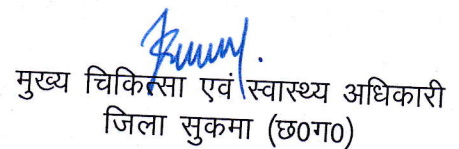 मुख्य चिकित्सा एवं स्वास्थ्य अधिकारी
जिला सुकमा (छ०ग०)